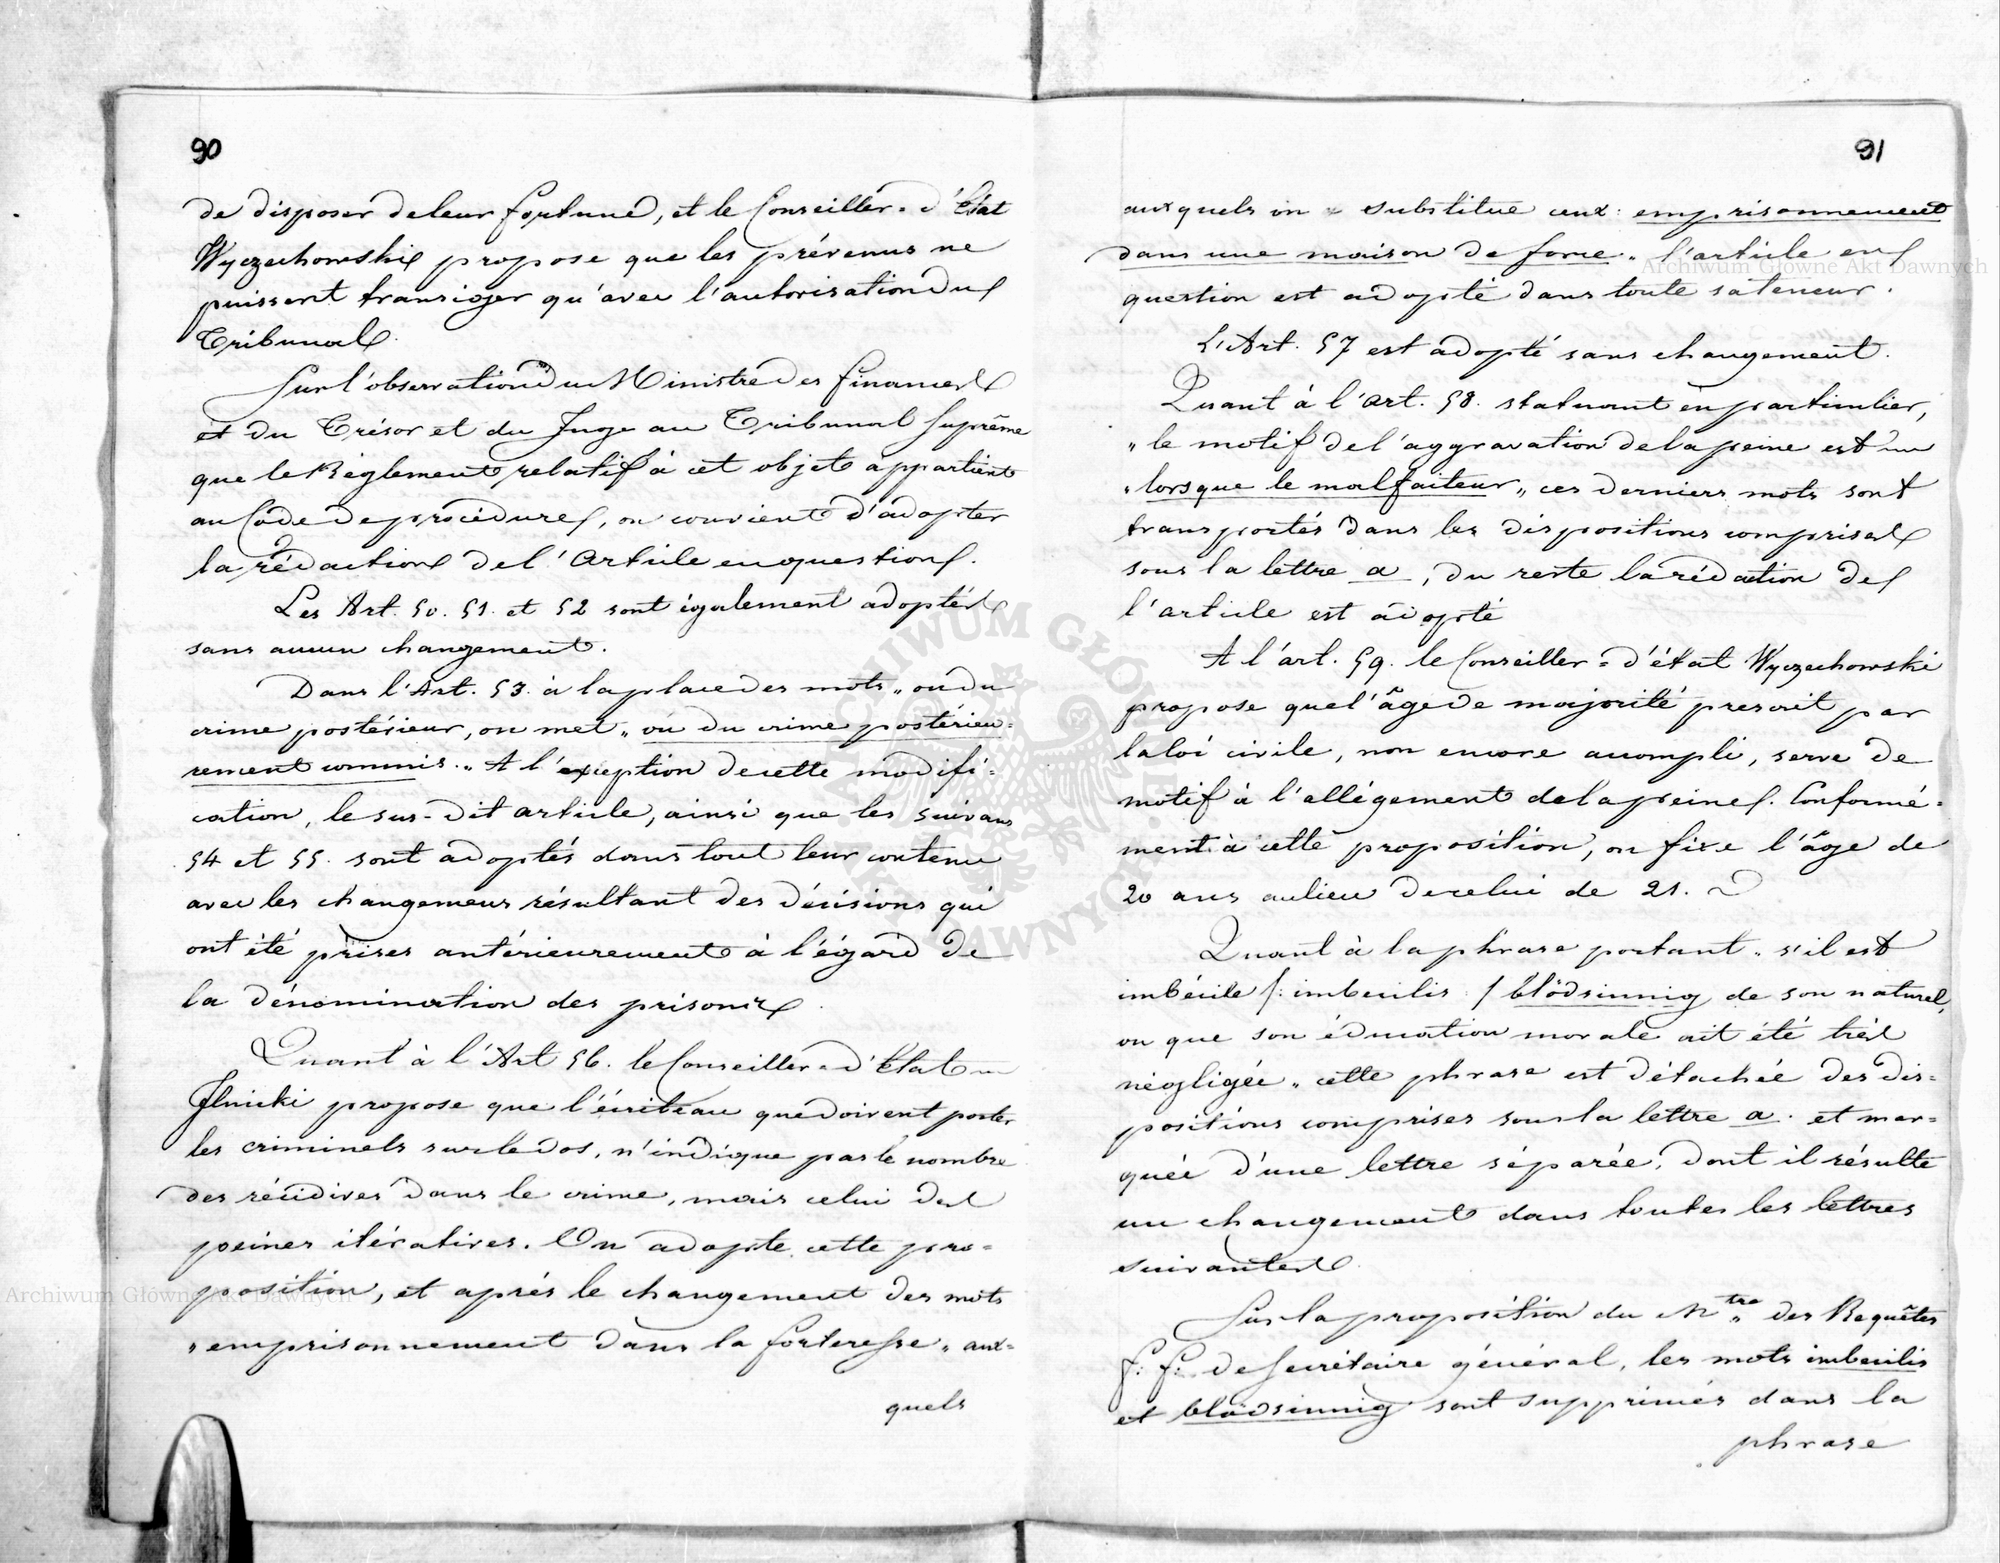 90
de disposer de leur fortune, et le Conseiller = d'État
Wyczechowski propose que les prévenus ne
puissent transiger qu'avec l'autorisation du
Tribunal.
Sur l'observation du Ministre des finances
et du Trésor et du Juge au Tribunal Suprême
que le Règlement relatif à cet objet appartient
au Code de procédure, on convient d'adopter
la rédaction de l'Article en question.
Les Art. 50. 51. et 52 sont également adoptés
sans aucun changement.
Dans l'Art. 53. à la place des mots „ ou du
crime postérieur, on met „ ou du crime postérieu=
rement commis. „ A l'exception de cette modifi=
cation, le sus-dit article, ainsi que les suivans
54 et 55. sont adoptés dans tout leur contenu
avec les changemens résultant des décisions qui
ont été prises antérieurement à l'égard de
la dénomination des prisons.
Quant à l'Art 56. le Conseiller = d'État
Ilnicki propose que l'écriteau que doivent porter
les criminels sur le dos, n'indique pas le nombre
des récidives dans le crime, mais celui des
peines itératives. On adopte cette pro=
position, et après le changement des mots
„ emprisonnement dans la forteresse „ aux=
quels
91
auxquels on substitue ceux: emprisonnement
dans une maison de force „ l'article en
question est adopté dans toute sa teneur.
L'Art. 57 est adopté sans changement.
Quant à l'art. 58. statuant en particulier,
„ le motif de l'aggravation de la peine est un
„ lorsque le malfaiteur „ ces derniers mots sont
transportés dans les dispositions comprises
sous la lettre a, du reste la rédaction de
l'article est adopté
A l'art. 59. le Conseiller = d'état Wyczechowski
propose que l'âge de majorité prescrit par
la loi civile, non encore accompli, serve de
motif à l'allégement de la peine. Conformé=
ment à cette proposition, on fixe l'âge de
20 ans au lieu de celui de 21.
Quant à la phrase portant „ s'il est
imbécile /: imbecilis :/ blödsinnig de son naturel,
ou que son éducation morale ait été très
négligée „ cette phrase est détachée des dis=
positions comprises sous la lettre a. et mar=
quée d'une lettre séparée, dont il résulte
un changement dans toutes les lettres
suivantes.
Sur la proposition du Mtre des Requêtes
f: f: de Secrétaire général, les mots imbecilis
et blödsinnig sont supprimés dans la
phrase
Archiwum Główne Akt Dawnych
Archiwum Główne Akt Dawnych
ARCHIWUM GŁÓWNE AKT DAWNYCH